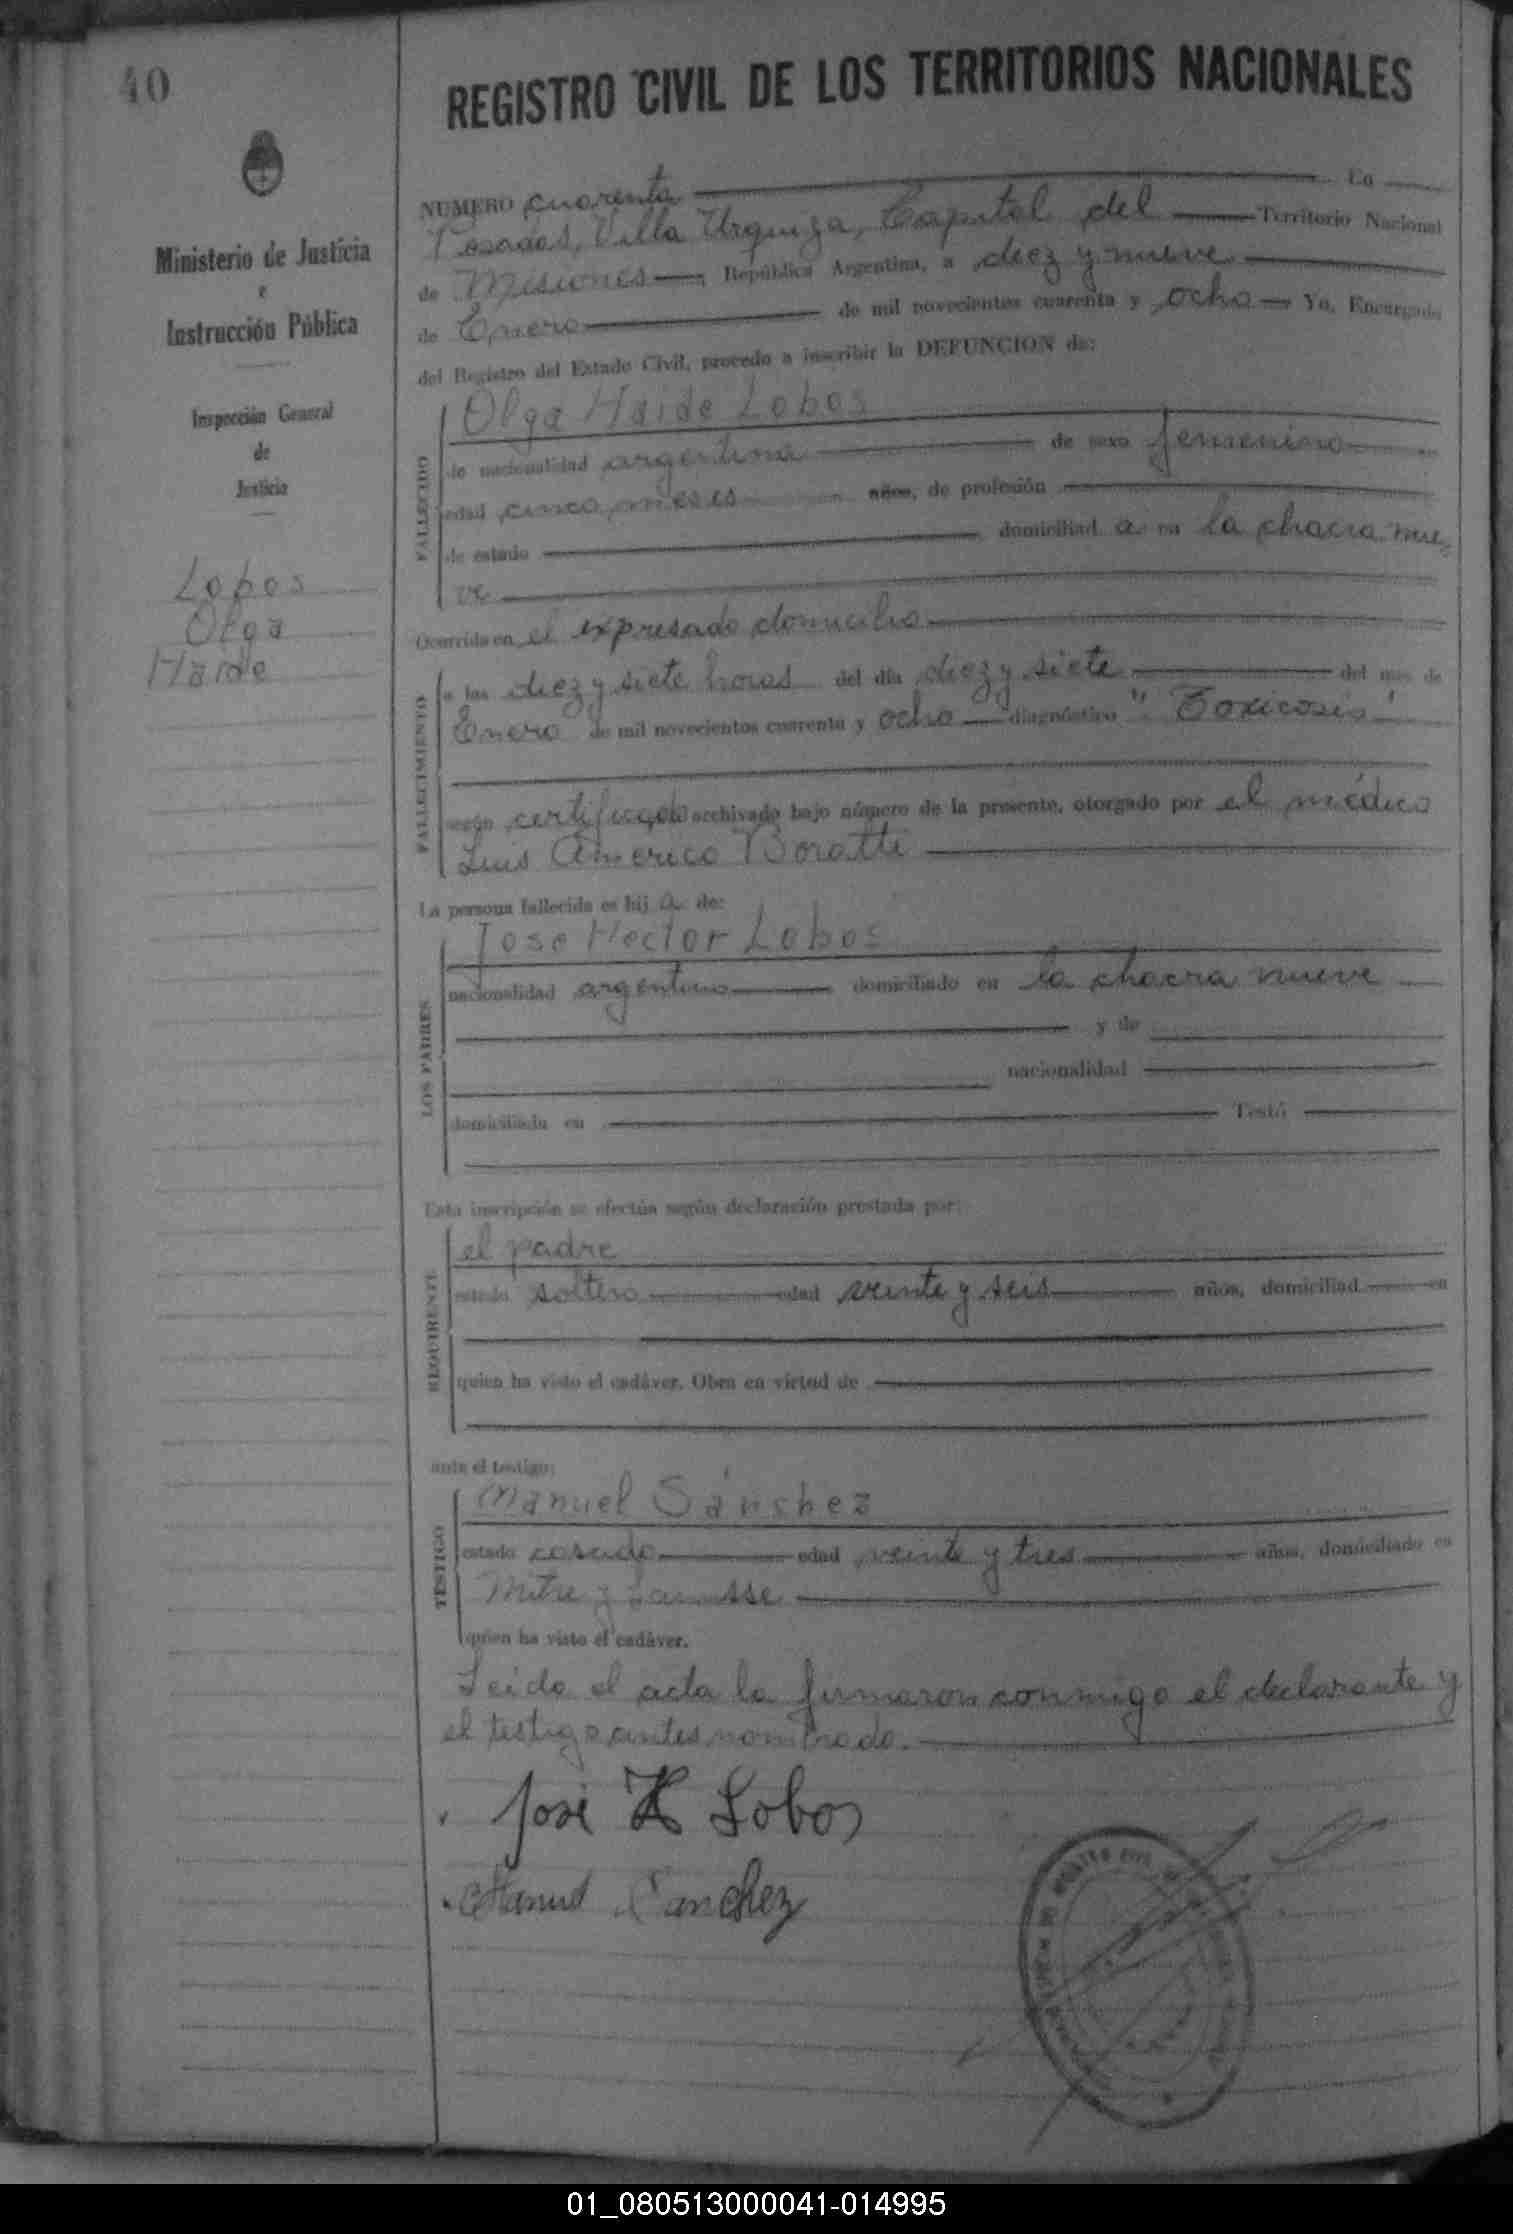 40
REGISTRO CIVIL DE LOS TERRITORIOS NACIONALES
Ministerio de Justicia
e
Instrucción Pública
Inspección General
de
Justicia
Lobos
Olga
Haide
NUMERO cuarenta En
Posadas, Villa Urquiza, Capital del Territorio Nacional
de Misiones, República Argentina, a diez y nueve
de Enero de mil novecientos cuarenta y ocho Yo, Encargado
del Registro del Estado Civil, procedo a inscribir la DEFUNCION de:
FALLECIDO
Olga Haide Lobos
de nacionalidad argentina de sexo femenino
edad cinco meses años, de profesión
de estado domiciliad a en la chacra nue-
ve
Ocurrida en el expresado domicilio
FALLECIMIENTO
a las diez y siete horas del día diez y siete del mes de
Enero de mil novecientos cuarenta y ocho diagnóstico "Toxicosis"
según certificado archivado bajo número de la presente, otorgado por el médico
Luis Americo Boratti
La persona fallecida es hij a de:
LOS PADRES
Jose Hector Lobos
nacionalidad argentino domiciliado en la chacra nueve
y de
nacionalidad
domiciliada en Testó
Esta inscripción se efectúa según declaración prestada por:
REQUIRENTE
el padre
estado soltero edad veinte y seis años, domiciliad en
quien ha visto el cadáver. Obra en virtud de
ante el testigo:
TESTIGO
Manuel Sánchez
estado casado edad veinte y tres años, domiciliado en
Mitre y
quien ha visto el cadáver.
Leida el acta la firmaron conmigo el declarante y
el testigo antes nombrado.
José H Lobos
Manuel Sanchez
01_080513000041-014995